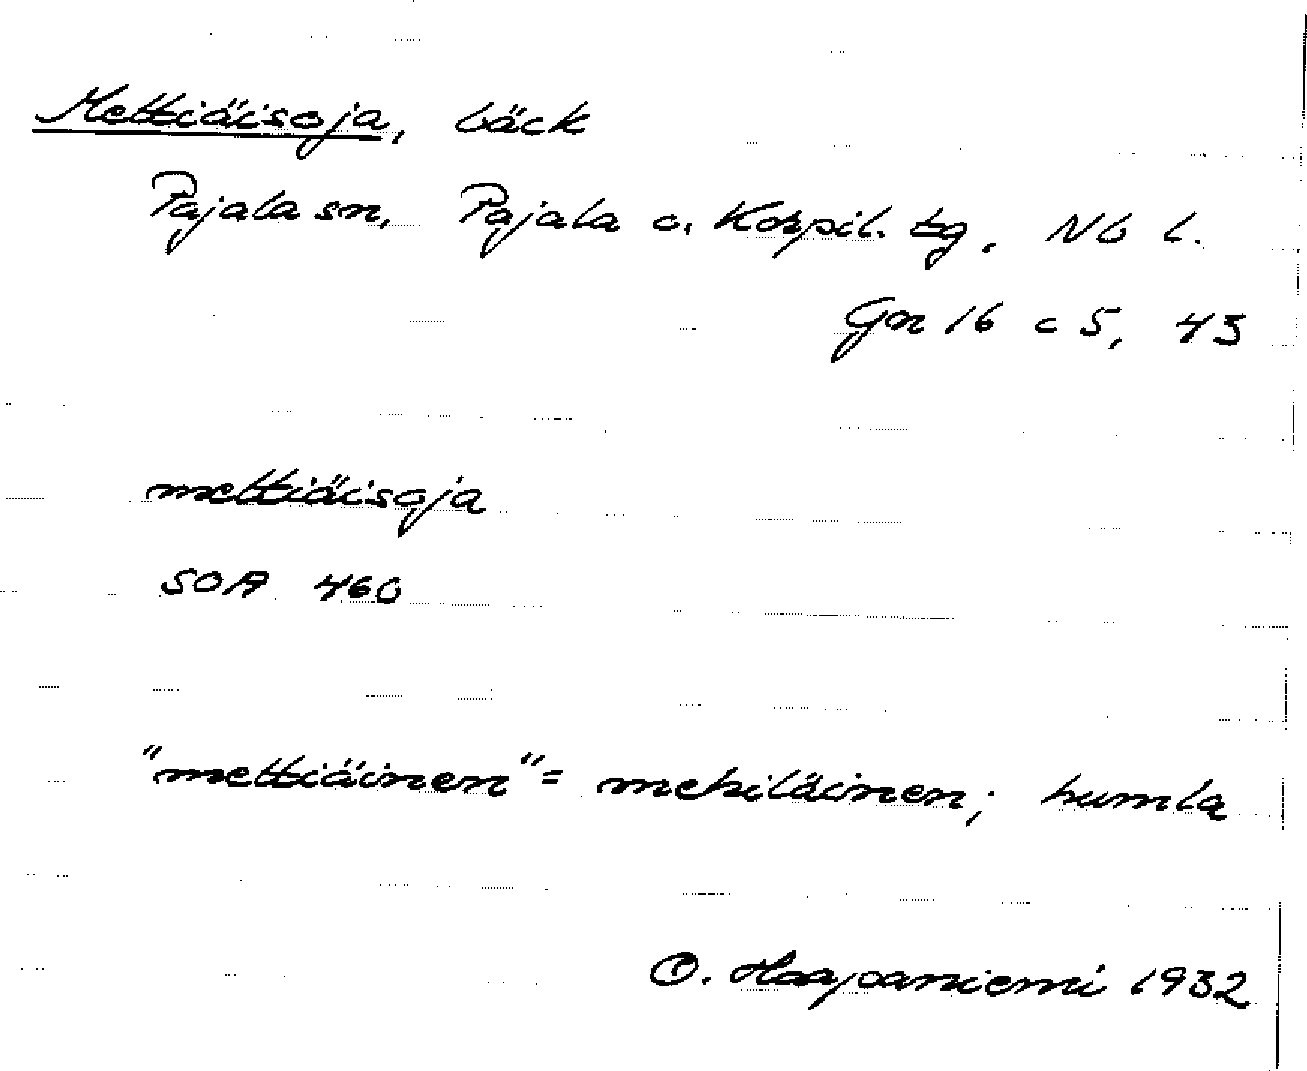 Mettiäisoja, bäck
Pajala sn, Pajala o. Korpil. tg, Nb l.
Gn 16 c 5, 43
mettiäisoja
SOA 460
"mettiäinen" = mehiläinen; humla
O. Haapaniemi 1932